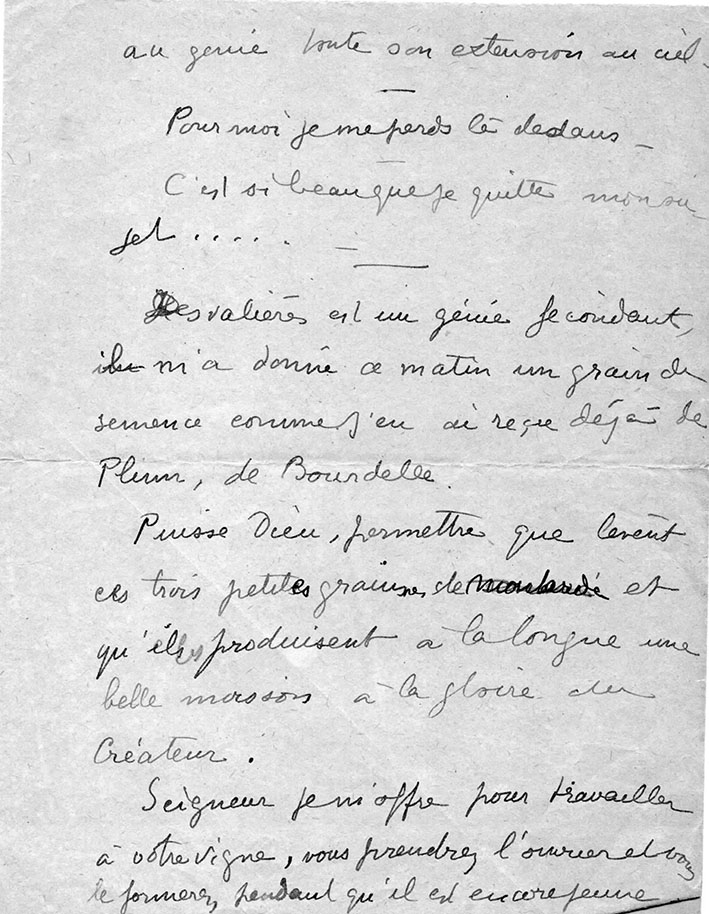 au génie toute son extension au ciel -
Pour moi je me perds là dedans -
C'est si beau que je quitte mon su-
jet ..... -
Desvalières est un génie fécondant,
m'a donné ce matin un grain de
semence comme j'en ai reçu déjà de
de Bourdelle.
Puisse Dieu, permettre que lèvent
ces trois petites graines de moutarde et
qu'elles produisent à la longue une
belle moisson à la gloire du
Créateur.
Seigneur je m'offre pour travailler
à votre vigne, vous prendrez l'ouvrier et vous
le formerez, pendant qu'il est encore jeune